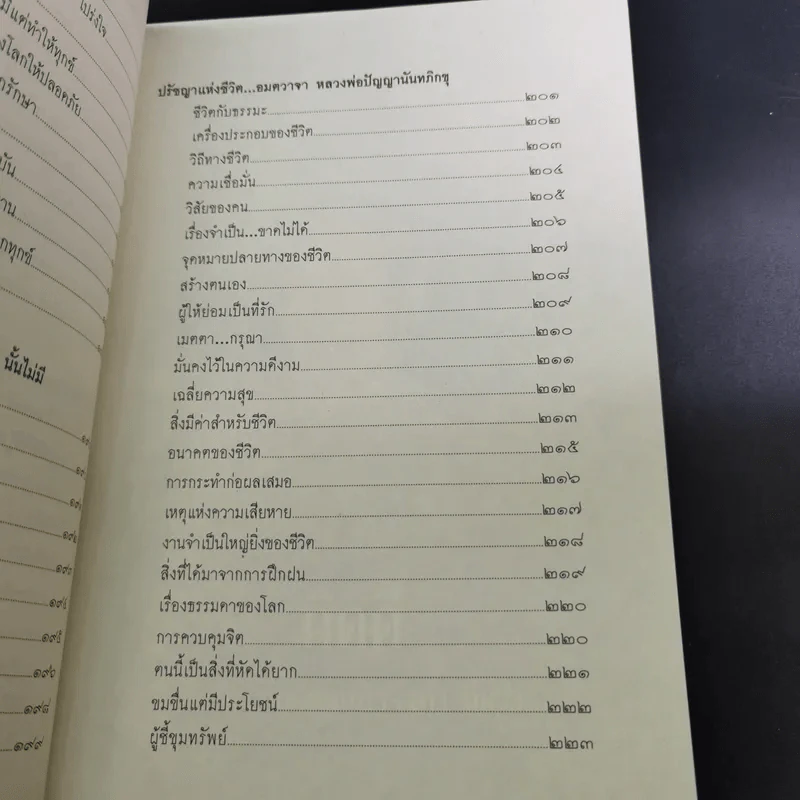 โปร่งใจ
มีแต่ทำให้ทุกข์
งโลกให้ปลอดภัย
กรักษา
บัน
าน
กทุกข์
นั้นไม่มี
๑๙๒
๑๙๓
๑๙๔
๑๙๕
๑๙๖
๑๙๘
๑๙๙
ปรัชญาแห่งชีวิต...อมตวาจา หลวงพ่อปัญญานันทภิกขุ
ชีวิตกับธรรมะ ๒๐๑
เครื่องประกอบของชีวิต ๒๐๒
วิถีทางชีวิต ๒๐๓
ความเชื่อมั่น ๒๐๔
วิสัยของคน ๒๐๕
เรื่องจำเป็น...ขาดไม่ได้ ๒๐๖
จุดหมายปลายทางของชีวิต ๒๐๗
สร้างตนเอง ๒๐๘
ผู้ให้ย่อมเป็นที่รัก ๒๐๙
เมตตา...กรุณา ๒๑๐
มั่นคงไว้ในความดีงาม ๒๑๑
เฉลี่ยความสุข ๒๑๒
สิ่งมีค่าสำหรับชีวิต ๒๑๓
อนาคตของชีวิต ๒๑๕
การกระทำก่อผลเสมอ ๒๑๖
เหตุแห่งความเสียหาย ๒๑๗
งานจำเป็นใหญ่ยิ่งของชีวิต ๒๑๘
สิ่งที่ได้มาจากการฝึกฝน ๒๑๙
เรื่องธรรมดาของโลก ๒๒๐
การควบคุมจิต ๒๒๐
ตนนี้เป็นสิ่งที่หัดได้ยาก ๒๒๑
ขมขื่นแต่มีประโยชน์ ๒๒๒
ผู้ชี้ขุมทรัพย์ ๒๒๓